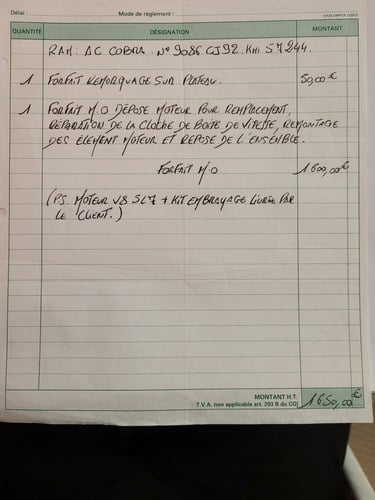 Délai : Mode de règlement :
EXACOMPTA
QUANTITÉ DÉSIGNATION MONTANT
RAM: AC COBRA. N° 9086 CJ 92. KM: 57244.
1 FORFAIT REMORQUAGE SUR PLATEAU. 50,00 €
1 FORFAIT M/O DÉPOSE MOTEUR POUR REMPLACEMENT,
RÉPARATION DE LA CLOCHE DE BOITE DE VITESSE, REMONTAGE
DES ÉLÉMENT MOTEUR ET REPOSE DE L'ENSEMBLE.
FORFAIT M/O 1600,00 €
(PS. MOTEUR V8 5L7 + KIT EMBRAYAGE LIVRÉE PAR
LE CLIENT.)
MONTANT H.T.
T.V.A. non applicable art. 293 B du CGI 1650,00 €